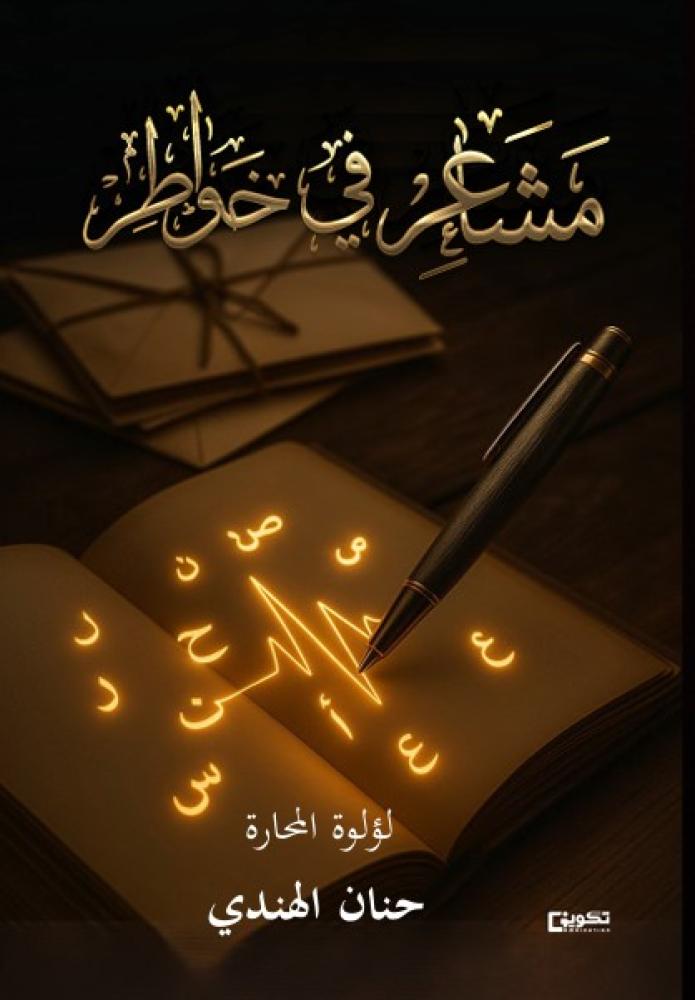 مَشَاعِر في خَوَاطِر
و
ص
ت
ح
ر
ر
ت
أ
ع
ع
س
لؤلوة المحارة
حنان الهندي
تكوين